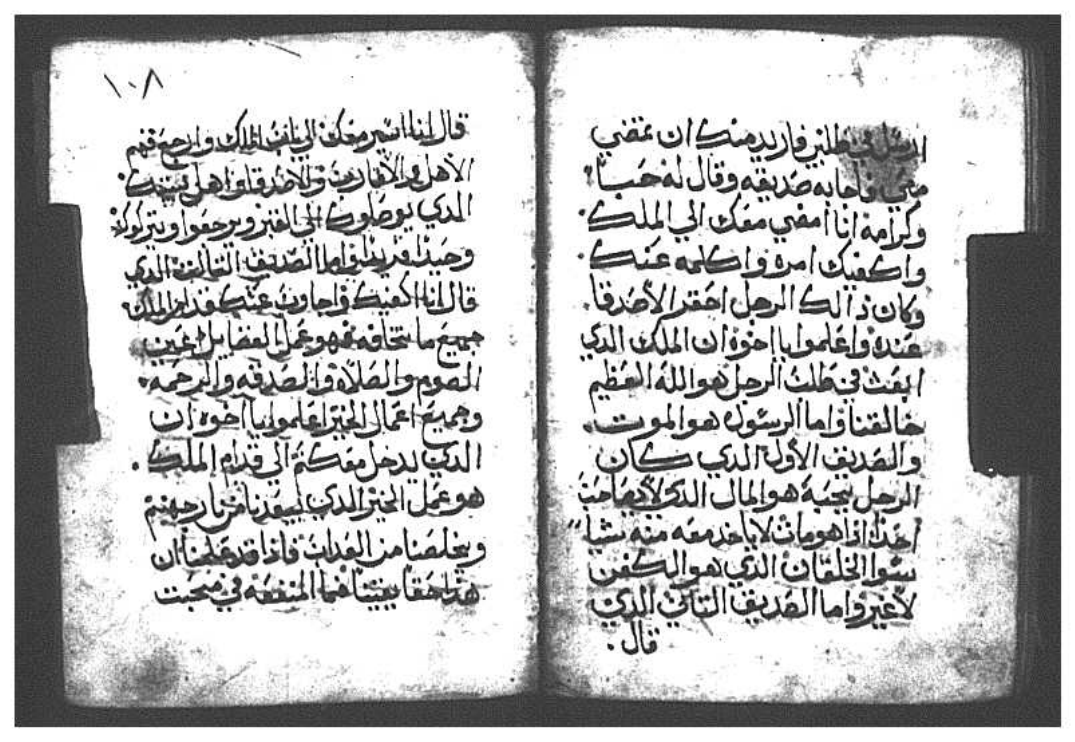 ارسل في طلبي فاريد منك ان تمضي
معي فاجابه صديقه وقال له حبا
وكرامة انا امضي معك الي الملك
واكفيك امره واكلمه عنك
وكان ذالك الرجل احقر الاصدقا
عنده واعلموا يا اخوة ان الملك الدي
ابعث في طلب الرجل هو الله العظيم
خالقنا واما الرسول هو الموت
والصديق الاول الدي كان
الرجل يحبه هو المال الدي لا يصاحب
احدا اذا هو مات لا ياخد معه منه شيا
سوا الخلقان الدي هو الكفن
لاغير واما الصديق التاني الدي
قال
١٠٨
قال انا اسير معك الي باب الملك وارجع فهم
الاهل والاقارب والاصدقا واهل بيتك
الدي يوصلوك الي القبر ويرجعوا ويتركوك
وحيدا فريدا واما الصديق التالت الدي
قال انا اكفيك واجاوب عنك قدام الملك
جميع ما تخافه فهو عمل الفضايل
الصوم والصلاة والصدقه والرحمه
وجميع اعمال الخير اعلموا يا اخوه ان
الدي يدخل معكم الي قدام الملك
هو عمل الخير الدي ينقدنا من نار جهنم
ويخلصنا من العداب فاذا قد علمنا ان
هذا حقا يقينا فما المنفعه في محبت